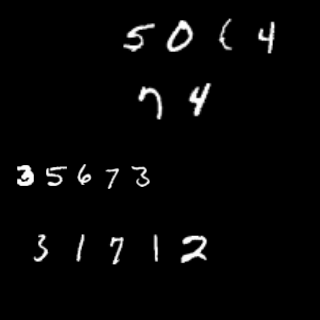 50(4
74
35673
31712